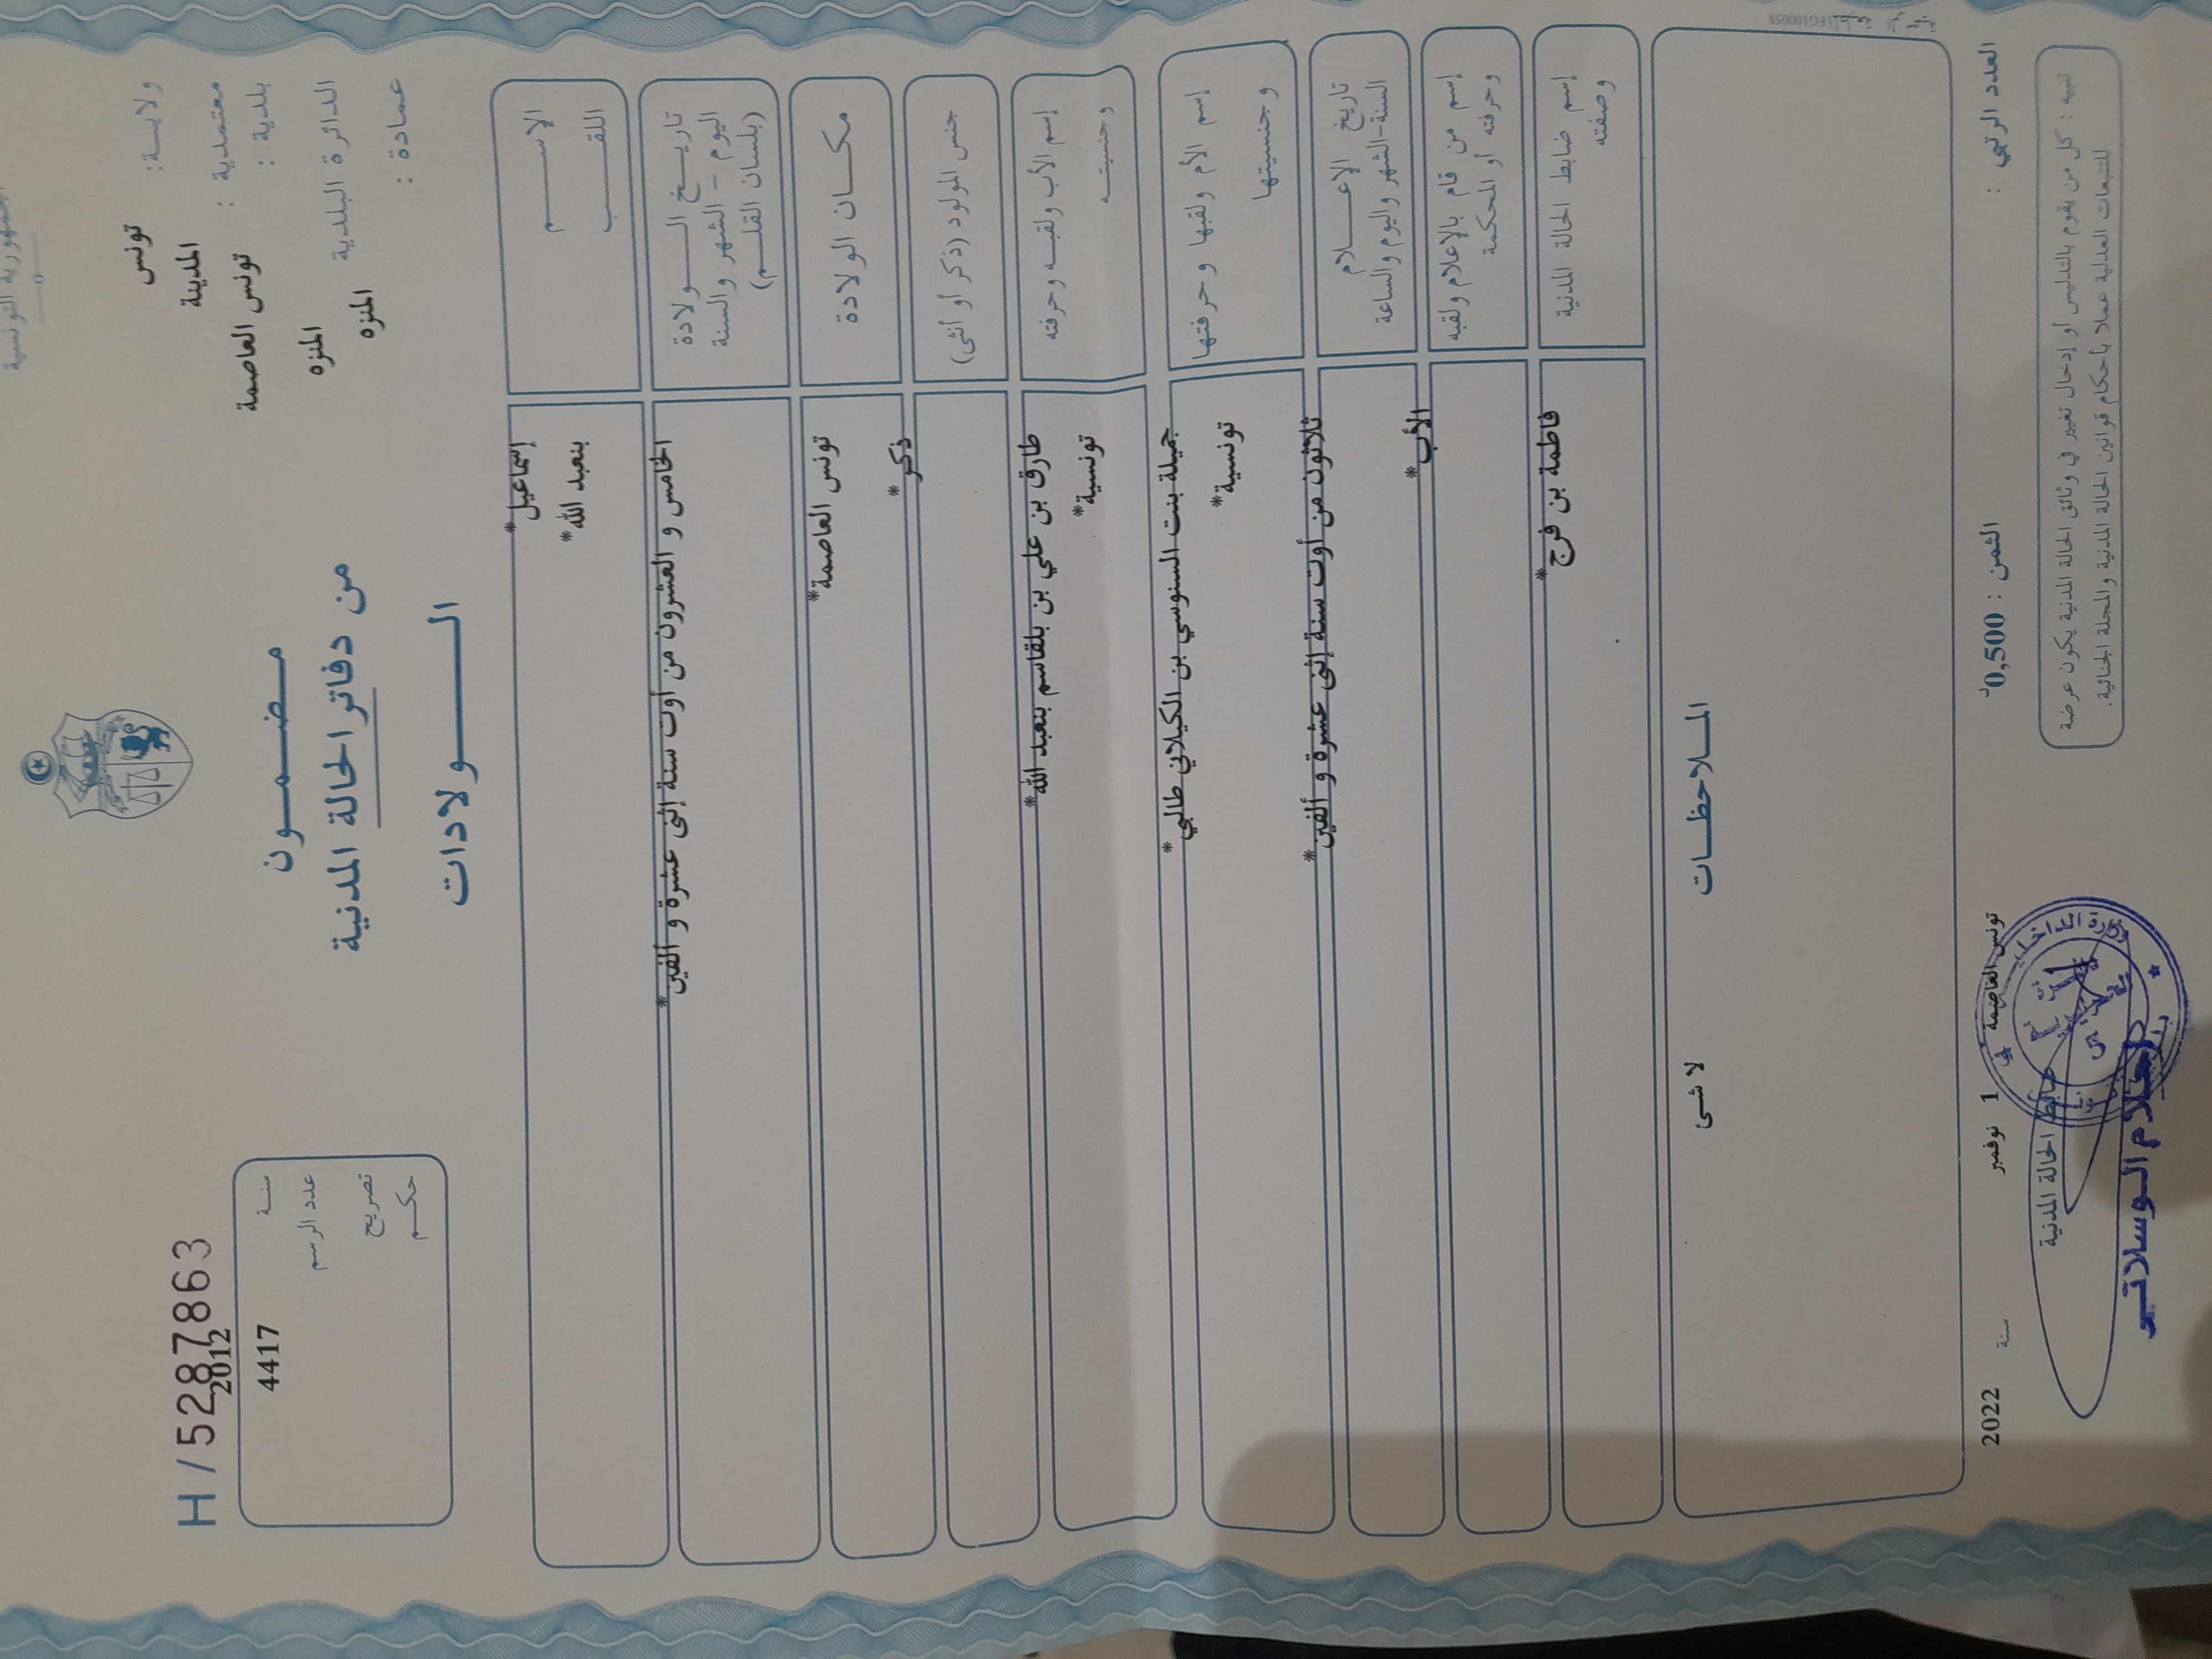 الجمهورية التونسية
ولايـة: تونس
معتمدية : المدينة
بلدية : تونس العاصمة
الدائرة البلدية المنزه
عمادة : المنزه
مـضـمـون
من دفاتر الحالة المدنية
الـولادات
H/5287863
سنـة 2012
عدد الرسم 4417
تصريح
حكـم
الإسـم
إسماعيل*
اللقـب
بنعبد الله*
تاريـخ الـولادة
اليوم - الشهر والسنة
(بلسان القلـم)
الخامس و العشرون من أوت سنة إثنى عشرة و ألفين*
مكـان الولادة
تونس العاصمة*
جنس المولود (ذكر أو أنثى)
ذكر*
إسم الأب ولقبـه وحرفته
طارق بن علي بن بلقاسم بنعبد الله*
وجنسيتـه
تونسية*
إسم الأم ولقبها وحرفتها
جميلة بنت السنوسي بن الكيلاني طالبي*
وجنسيتها
تونسية*
تاريخ الإعـلام
السنة-الشهر واليوم والساعة
ثلاثون من أوت سنة إثنى عشرة و ألفين*
إسم من قام بالإعلام ولقبه
وحرفته أو المحكمة
الأب*
إسم ضابط الحالة المدنية
وصفته
فاطمة بن فرج*
المـلاحظـات
لا شئ
العدد الرتبي :
الثمن : 0,500د
تونس العاصمة في 1 نوفمبر سنة 2022
ضابط الحالة المدنية
تنبيه : كل من يقوم بالتدليس أو إدخال تغيير في وثائق الحالة المدنية يكون عرضة
للتتبعات العدلية عملا بأحكام قوانين الحالة المدنية والمجلة الجنائية.